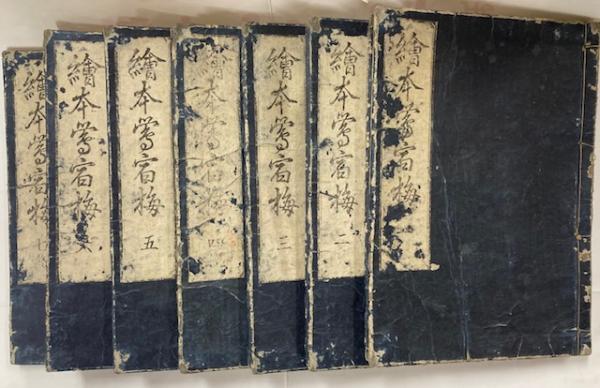 繪本鶯宿梅
繪本鶯宿梅 二
繪本鶯宿梅 三
繪本鶯宿梅 四
繪本鶯宿梅 五
繪本鶯宿梅 六
繪本鶯宿梅 七